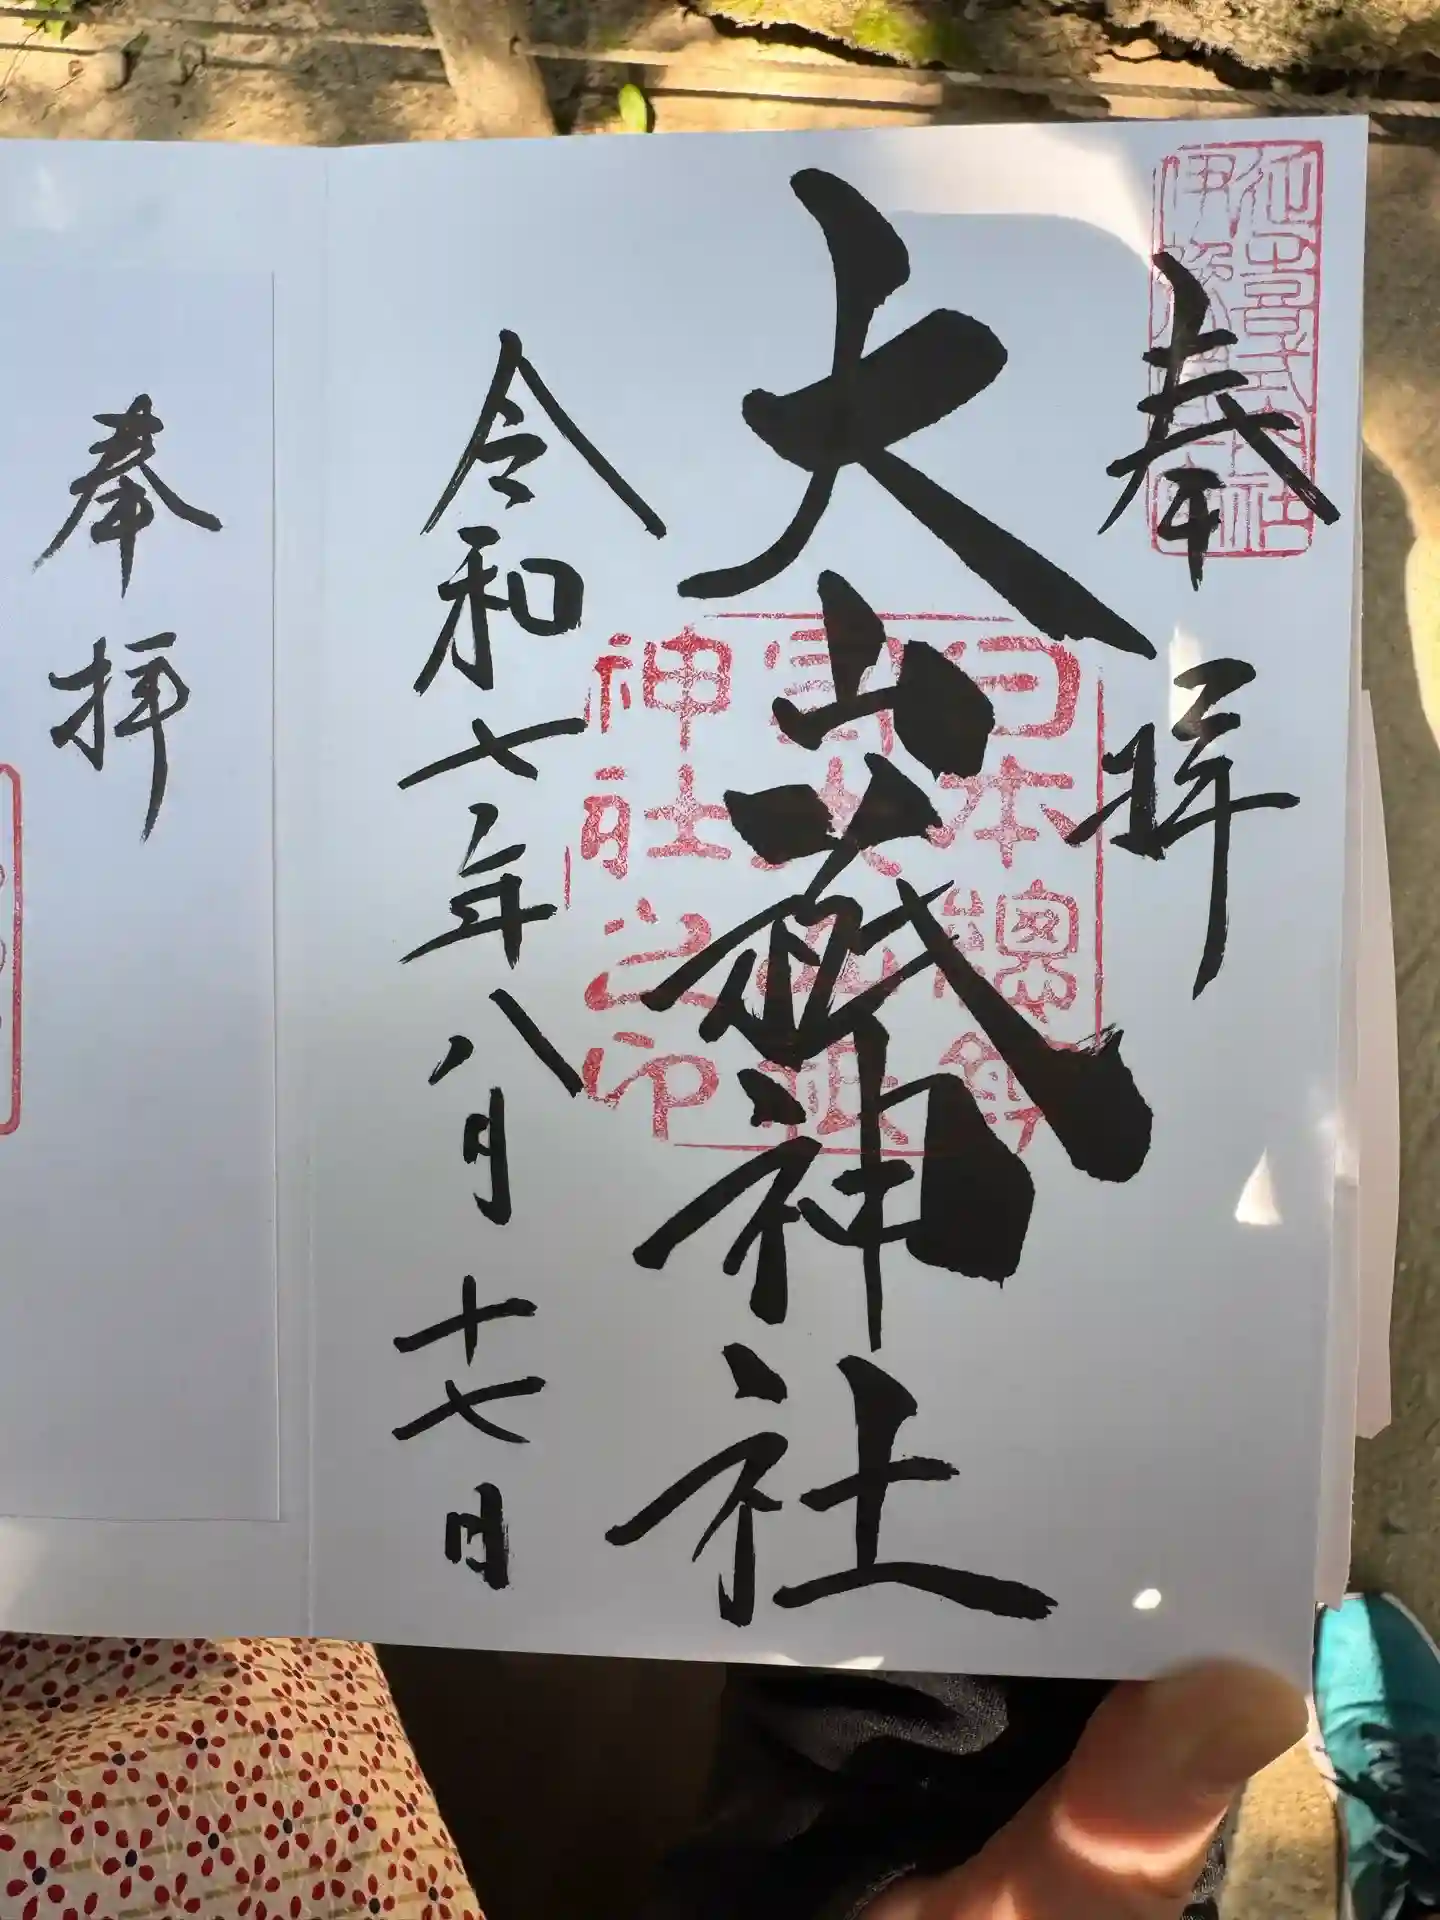 延喜式内社
奉拝
日本總鎮
守大山祇
神社之印
大山祇神社
令和七年八月十七日
奉拝